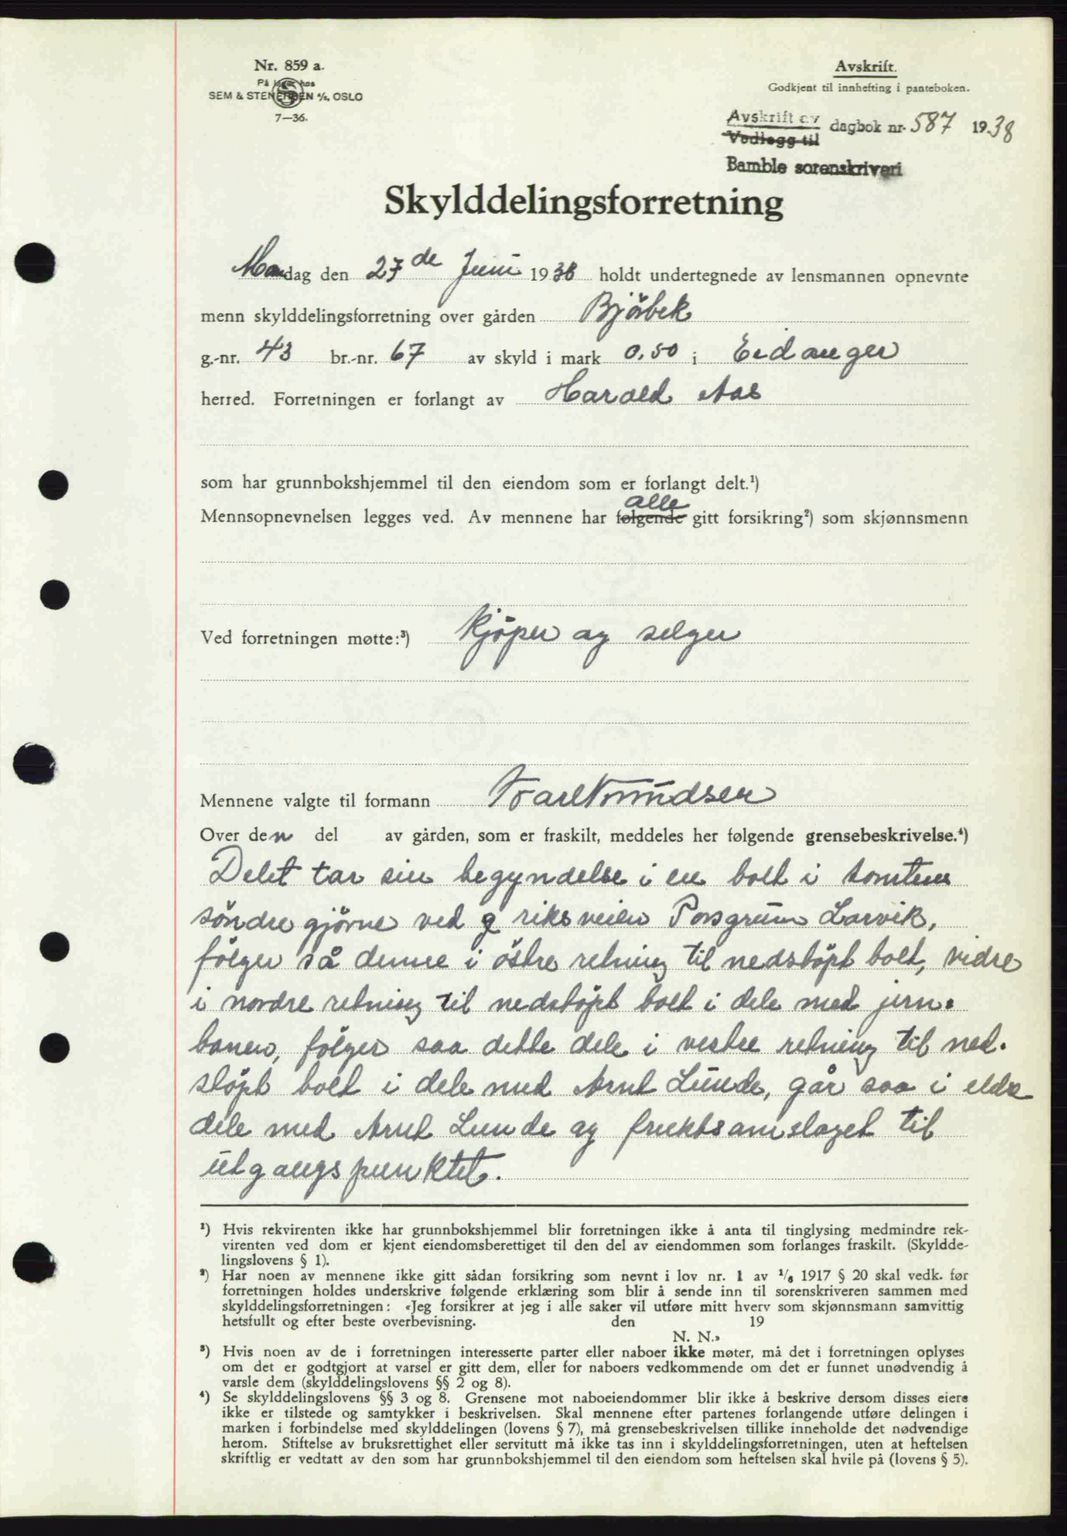 Nr. 859 a.
På lager hos
SEM & STENERSEN A/S, OSLO
7—36.
Avskrift.
Godkjent til innhefting i panteboken.
Avskrift av
Vedlegg til
dagbok nr. 587 1938
Bamble sorenskriveri
Skylddelingsforretning
Mandag den 27de Juni 1938 holdt undertegnede av lensmannen opnevnte
menn skylddelingsforretning over gården Bjørbek
g.-nr. 43 br.-nr. 67 av skyld i mark 0,50 i Eidanger
herred. Forretningen er forlangt av Harald Aas
som har grunnbokshjemmel til den eiendom som er forlangt delt.¹)
alle
Mennsopnevnelsen legges ved. Av mennene har følgende gitt forsikring²) som skjønnsmenn
Ved forretningen møtte:³) Kjöper og selger
Mennene valgte til formann Karl Knudsen
Over den del av gården, som er fraskilt, meddeles her følgende grensebeskrivelse.⁴)
Delet tar sin begyndelse i en bolt i tomtens
söndre gjörne ved riksveien Porsgrunn Larvik,
fölger så denne i östre retning til nedstöpt bolt, vidre
i nordre retning til nedstöpt bolt i dele med jern-
banen, fölger saa dette dele i vestre retning til ned-
stöpt bolt i dele med Arnt Lunde, går saa i eldre
dele med Arnt Lunde og fruktsamslaget til
utgangspunktet.
¹) Hvis rekvirenten ikke har grunnbokshjemmel blir forretningen ikke å anta til tinglysing medmindre rek-
virenten ved dom er kjent eiendomsberettiget til den del av eiendommen som forlanges fraskilt. (Skyldde-
lingslovens § 1).
²) Har noen av mennene ikke gitt sådan forsikring som nevnt i lov nr. 1 av 1/6 1917 § 20 skal vedk. før
forretningen holdes underskrive følgende erklæring som blir å sende inn til sorenskriveren sammen med
skylddelingsforretningen: «Jeg forsikrer at jeg i alle saker vil utføre mitt hverv som skjønnsmann samvittig
hetsfullt og efter beste overbevisning. den 19
N. N.»
³) Hvis noen av de i forretningen interesserte parter eller naboer ikke møter, må det i forretningen oplyses
om det er godtgjort at varsel er gitt dem, eller for naboers vedkommende om det er funnet unødvendig å
varsle dem (skylddelingslovens §§ 2 og 8).
⁴) Se skylddelingslovens §§ 3 og 8. Grensene mot naboeiendommer blir ikke å beskrive dersom disses eiere
ikke er tilstede og samtykker i beskrivelsen. Skal mennene efter partenes forlangende utføre delingen i
marken i forbindelse med skylddelingen (lovens § 7), må grensebeskrivelsen tillike inneholde det nødvendige
herom. Stiftelse av bruksrettighet eller servitutt må ikke tas inn i skylddelingsforretningen, uten at heftelsen
skriftlig er vedtatt av den som har grunnbokshjemmel til den eiendom som heftelsen skal hvile på (lovens § 5).